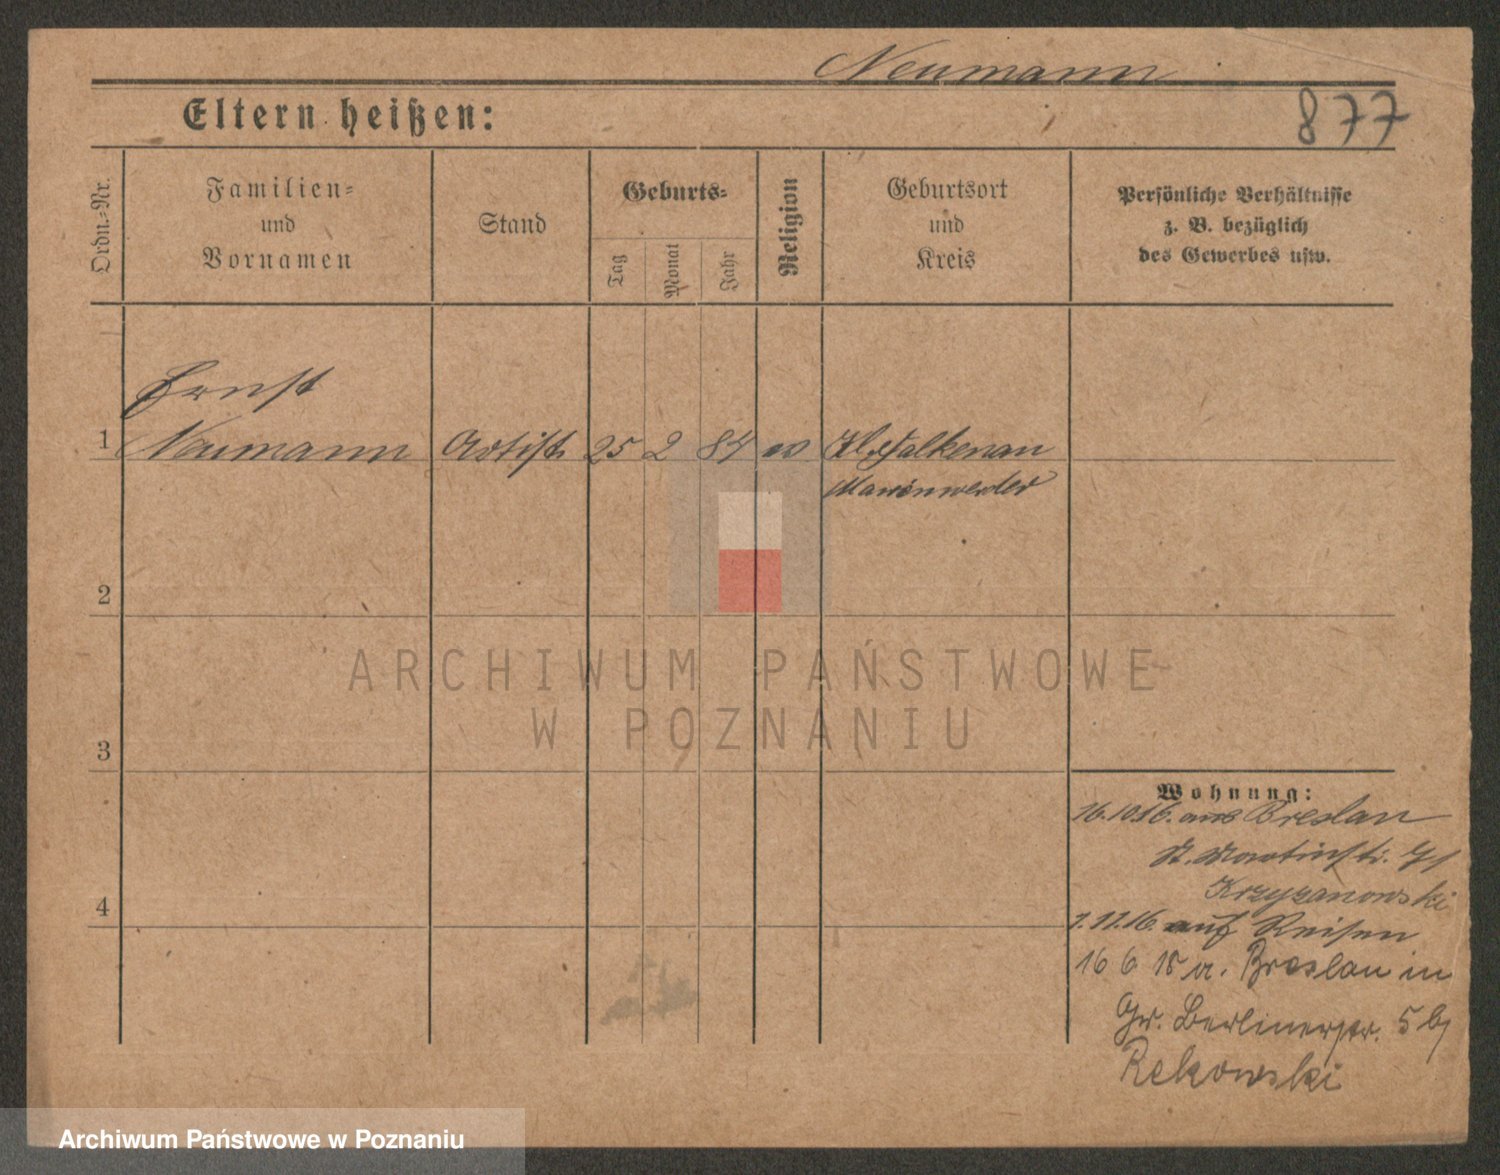 Neumann
Eltern heißen:
877
Ordn.-Nr.
Familien-
und
Vornamen
Stand
Geburts-
Tag
Monat
Jahr
Religion
Geburtsort
und
Kreis
Persönliche Verhältnisse
z. B. bezüglich
des Gewerbes usw.
Ernst
1 Neumann Artist 25 2 84 ev Kl. Falkenau
Marienwerder
2
ARCHIWUM PAŃSTWOWE
W POZNANIU
3
Wohnung:
16.10.16. aus Breslau
St. Martinstr.
Krzyzanowski
4
1.11.16. auf Reisen
16 6 18 a. Breslau in
Gr. Berlinerstr. 5 b/
Rekowski
Archiwum Państwowe w Poznaniu